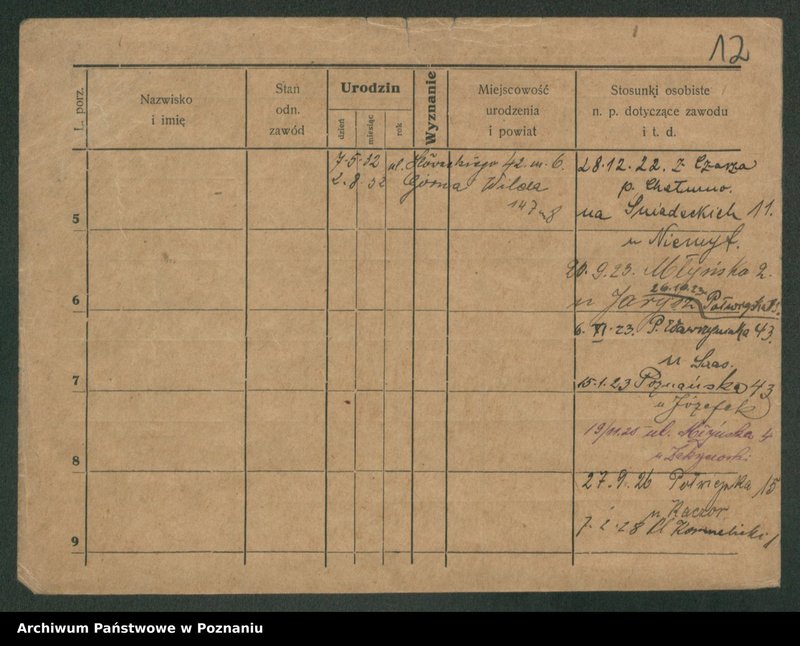 12
L. porz.
Nazwisko
i imię
Stan
odn.
zawód
Urodzin
dzień
miesiąc
rok
Wyznanie
Miejscowość
urodzenia
i powiat
Stosunki osobiste
n. p. dotyczące zawodu
i t. d.
7.5.32 ul. 42 m. 6.
2.8.32 Górna Wilda
147 m 8
28.12.22. z Czarza
p. Chełmno.
5
na Śniadeckich 11.
u Niemyt.
20.9.23. Młyńska 2.
26.10.23
6
u
6.XI.23. P. Wawrzyniaka 43.
u
7
15.1.23 Poznańska 43
u Józefek
19/11.25 ul.
8
27.9.26 Półwiejska 15
u Kaczor
9
7.2.28
Archiwum Państwowe w Poznaniu